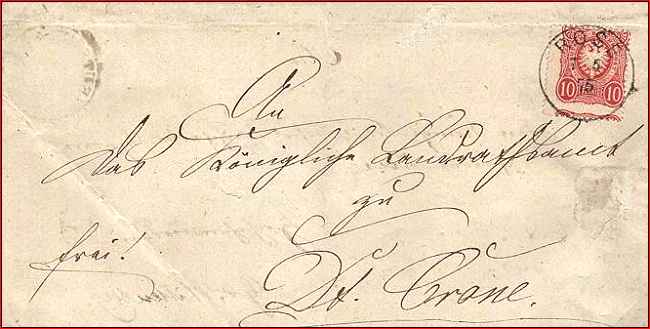 ROSE
5
75
10 10
An
das Königliche Landrathsamt
zu
frei!
Dt. Crone.